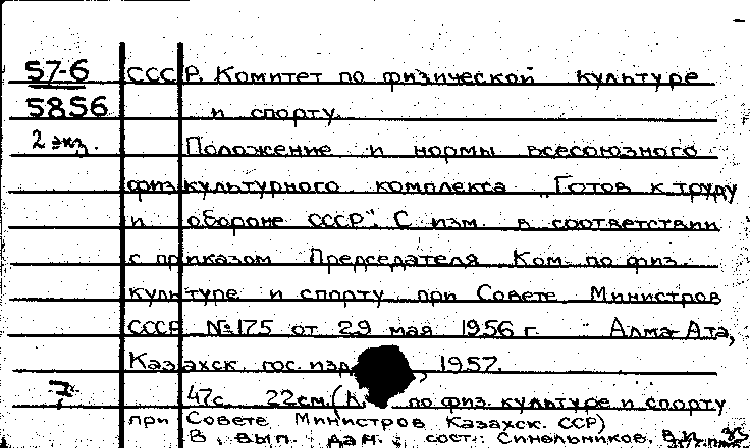 57-6 СССР. Комитет по физической культуре
5856 и спорту.
2 экз. Положение и нормы всесоюзного
физкультурного комплекса "Готов к труду
и обороне СССР". С изм. в соответствии
с приказом Председателя Ком. по физ.
культуре и спорту при Совете Министров
СССР №175 от 29 мая 1956 г. Алма-Ата,
Казахск. гос. изд, 1957.
47с. 22см. по физ. культуре и спорту
при Совете Министров Казахск. ССР)
В вып. дан.: сост.: Синельников, В.И.